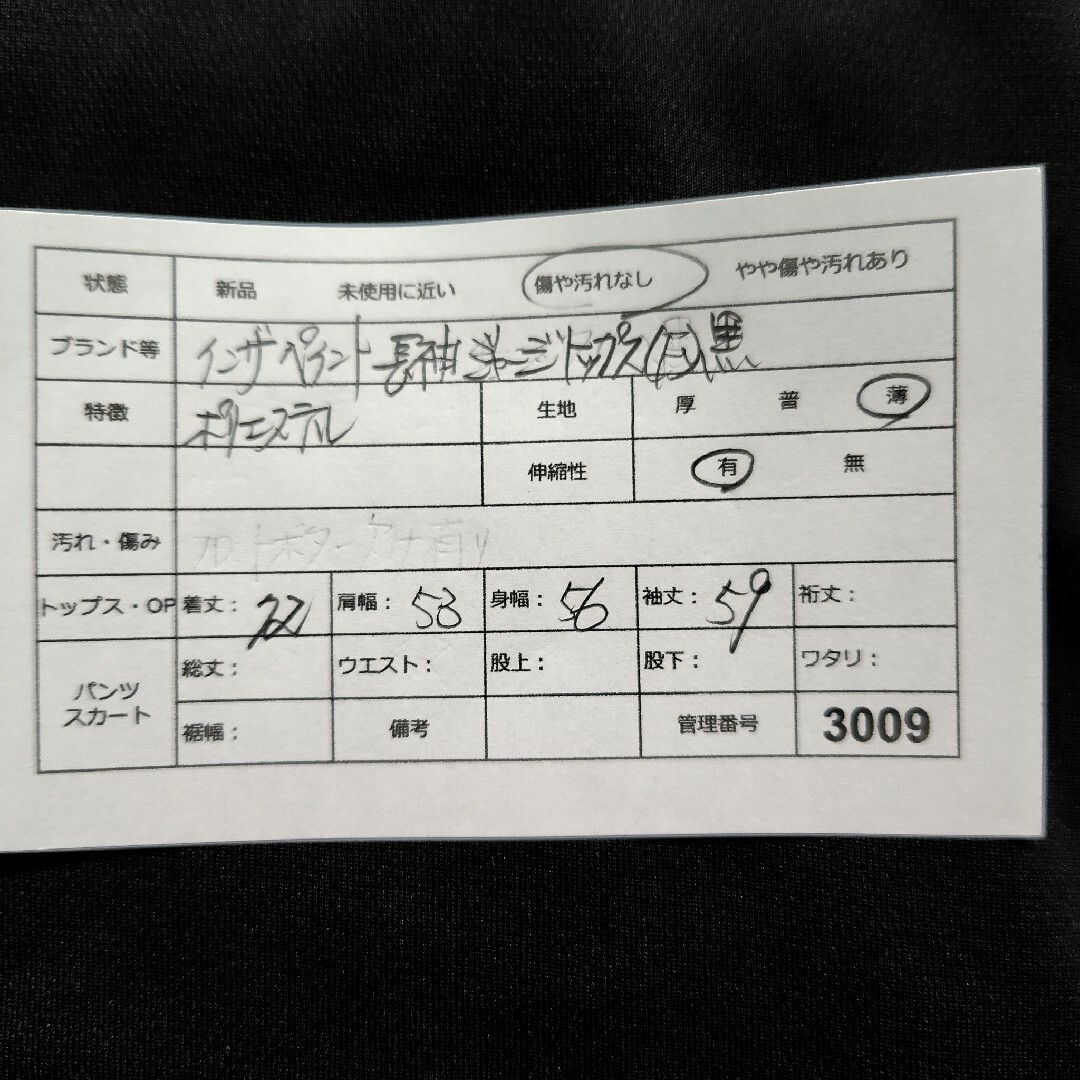 状態 新品 未使用に近い 傷や汚れなし やや傷や汚れあり
ブランド等 インザペイント 長袖 ジャージトップス 黒
特徴 ポリエステル 生地 厚 普 薄
伸縮性 有 無
汚れ・傷み フロントボタン 有り
トップス・OP 着丈: 72 肩幅: 53 身幅: 56 袖丈: 59 裄丈:
パンツ スカート 総丈: ウエスト: 股上: 股下: ワタリ:
裾幅: 備考 管理番号 3009